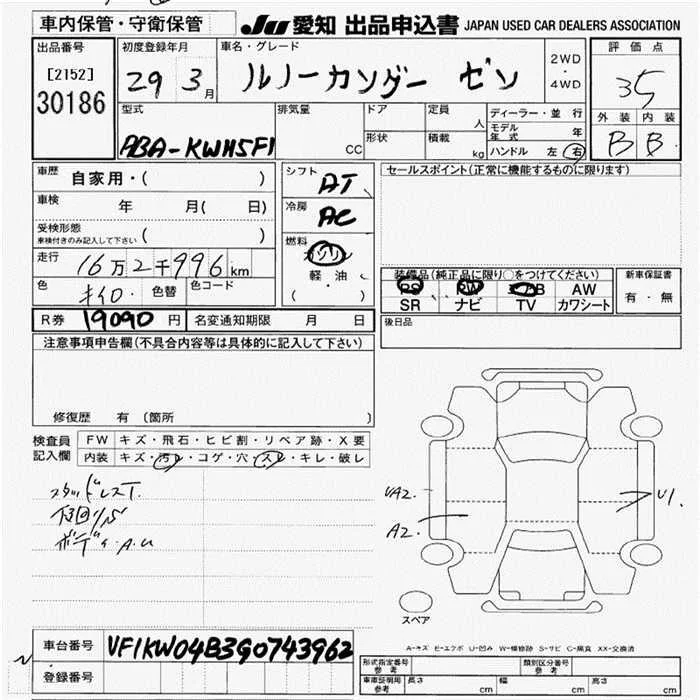 車内保管・守衛保管
JU 愛知 出品申込書 JAPAN USED CAR DEALERS ASSOCIATION
出品番号 初度登録年月 車名・グレード 2WD ・ 4WD 評価点
[2152]
30186
29 3月
ルノーカングー ゼン
35
型式 排気量 ドア 定員 ディーラー・並行 外装 内装
ABA-KWH5F1 CC 形状 人 積載 kg
モデル年式 年
ハンドル 左 右
B B
車歴 自家用・( )
シフト AT
セールスポイント(正常に機能するものに限ります)
車検 年 月( 日)
冷房 AC
受検形態 ( )
車検付きのみ記入して下さい
燃料 ガソリン
軽・油
( )
走行 16万2千996km
装備品(純正品に限り○をつけてください) 新車保証書
色 色替 色コード
PS PW AW 有・無
SR ナビ TV カワシート
R券 19090円 名変通知期限 月 日
後日品
注意事項申告欄(不具合内容等は具体的に記入して下さい)
修復歴 有 (箇所 )
検査員記入欄 FW キズ・飛石・ヒビ割・リペア跡・X要
内装 キズ・汚レ・コゲ・穴・スレ・キレ・破レ
スタッドレスT.
下回りS
ボディ・A.U
UA2.
A2.
U1.
スペア
車台番号 VF1KW04B3G0743962
A-キズ E-エクボ U-凹み W-補修跡 S-サビ C-腐食 XX-交換済
登録番号
形式指定番号 参考 類別区分番号 参考
車庫証明用 参考 長さ cm 幅 cm 高さ cm